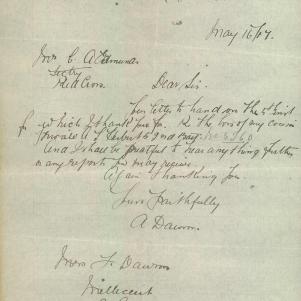 May 16/17.
Mrs. C. A. Edmunds
Secty
Red Cross. Dear Sir.
Your letter to hand on the 5th inst
for which I thank you for. Re the loss of my cousin
Private A. J. 2nd Batt. No 5260
and I shall be grateful to hear anything further
or any reports you may receive
Again Thanking You.
Yours Faithfully
A Dawson.
Mrs F. Dawson
Millicent